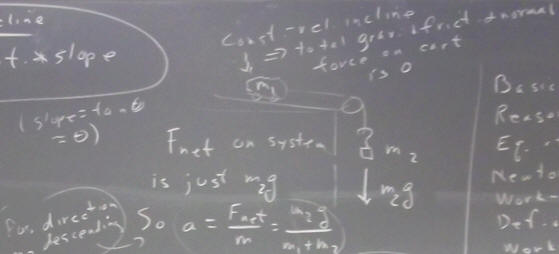 cline
t. * slope
(slope = tan θ
= θ)
Const-vel. incline
=> total grav. + frict. + normal
force on cart
is 0
m1
Fnet on system
m2
is just m2g
m2g
for direction
descending
So a = Fnet/m = m2g/(m1+m2)
Basic
Reaso
Eq.
Newto
Work-
Def.
Work